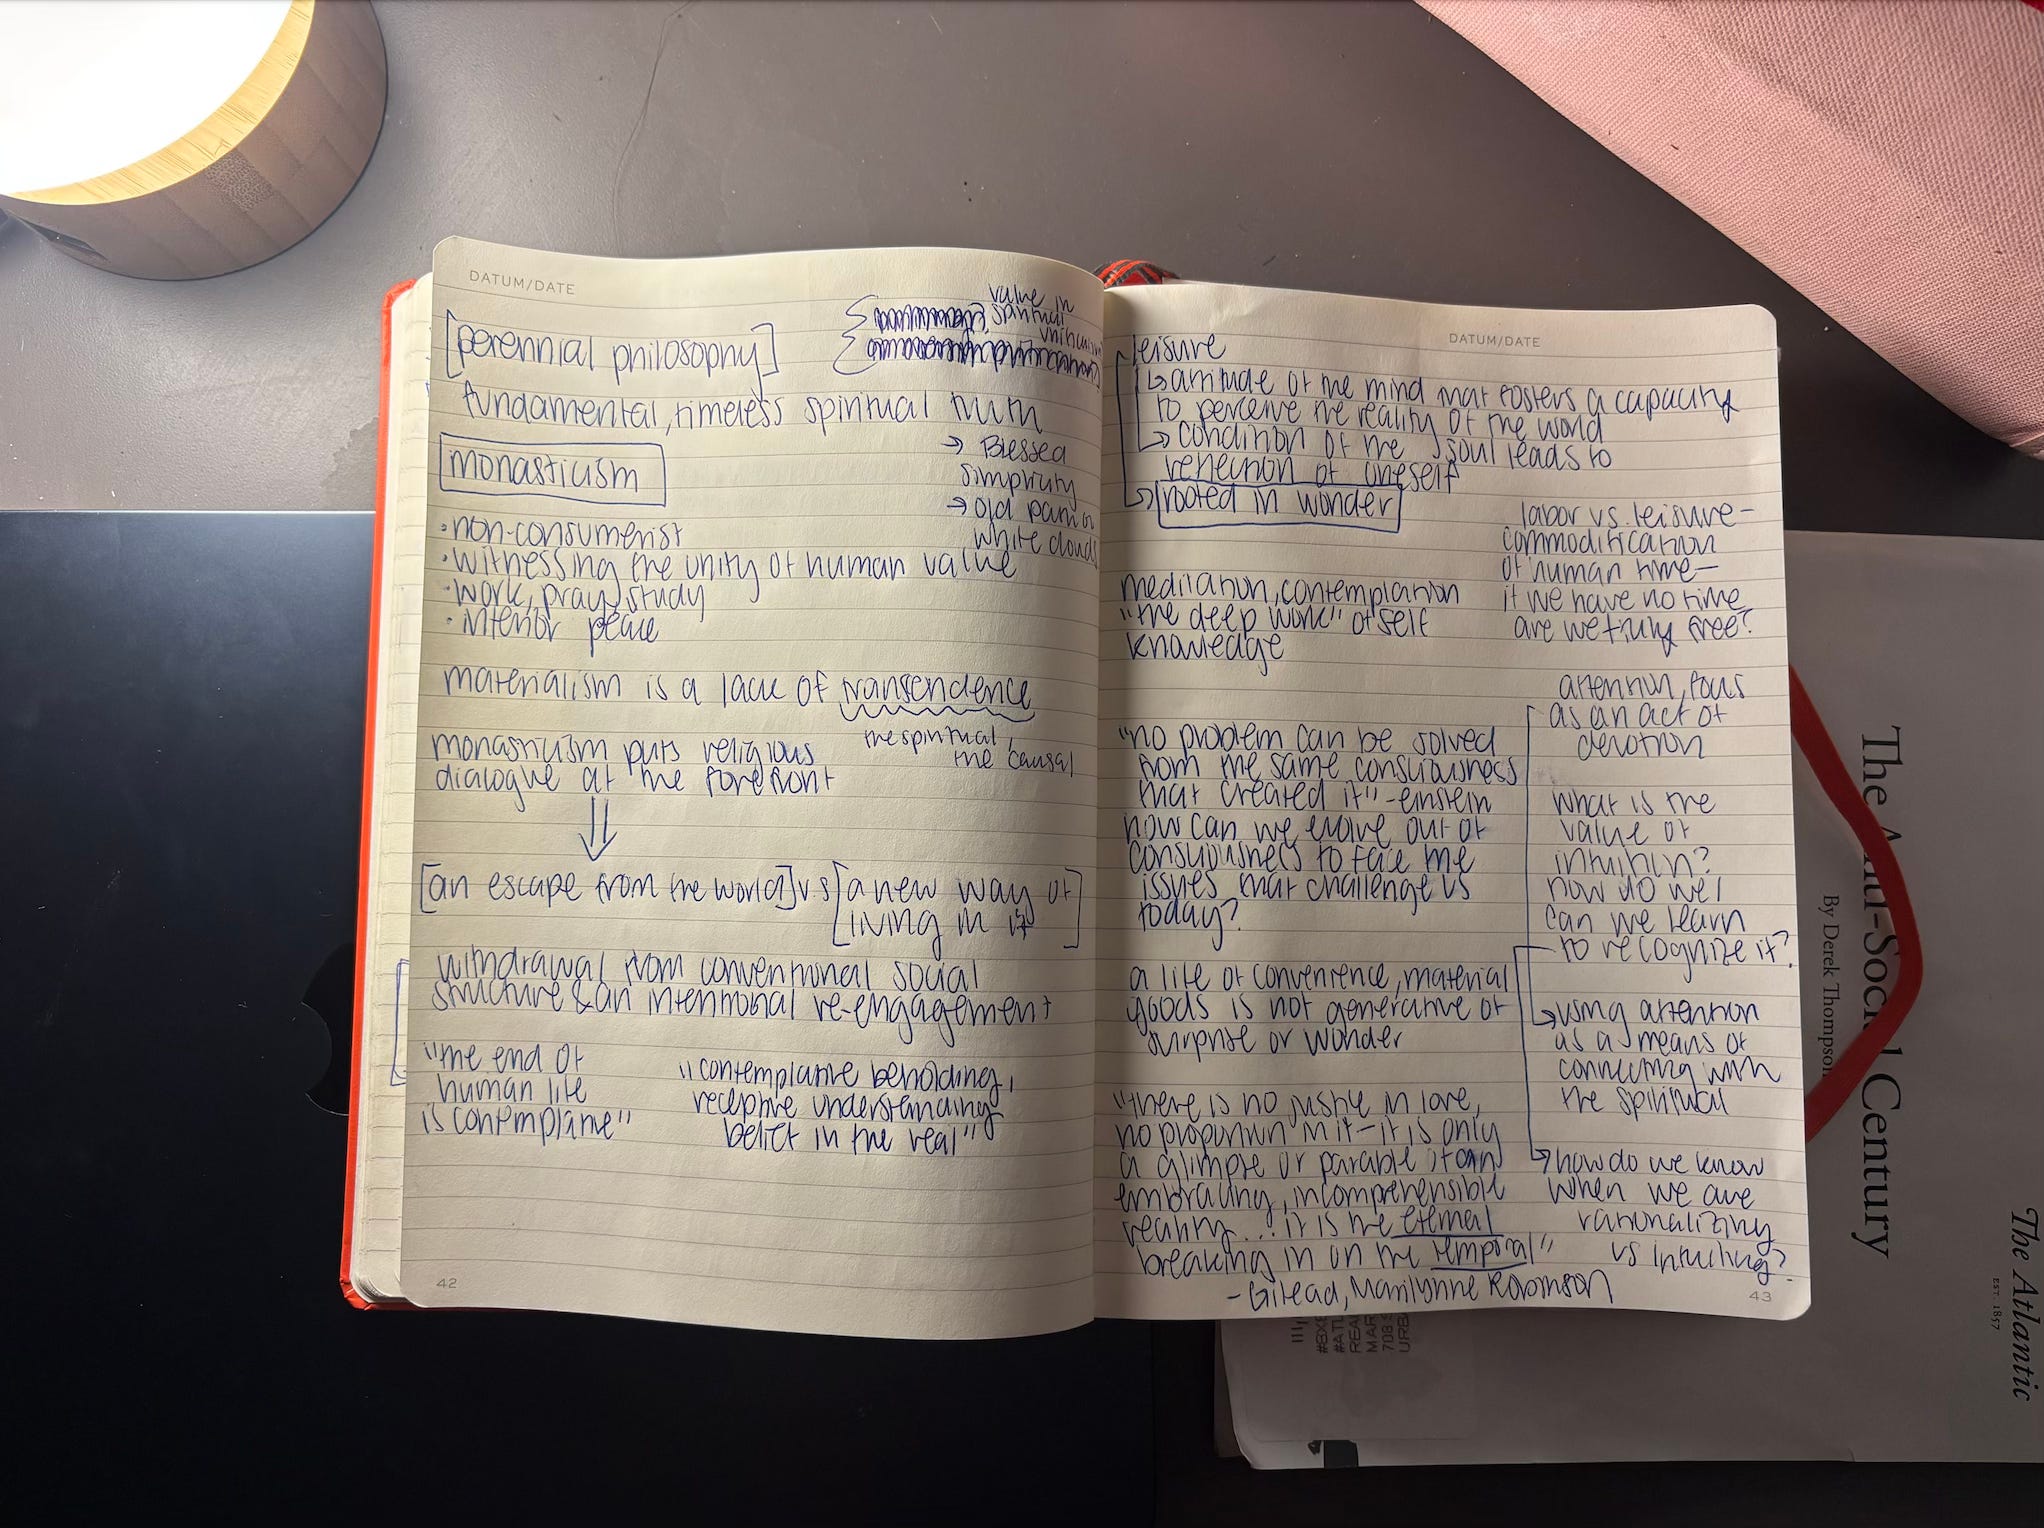 DATUM/DATE
[perennial philosophy]
value in
spiritual
fundamental, timeless spiritual truth
→ Blessed
simplicity
→ old path
white clouds
monasticism
• non-consumerist
• witnessing the unity of human value
• work, pray, study
• interior peace
materialism is a lack of transendence
the spiritual,
the causal
monasticism puts religious
dialogue at the forefront
[an escape from the world] vs [a new way of
living in it]
withdrawal from conventional social
structure & an intentional re-engagement
"the end of
human life
is contemplative"
"contemplative beholding,
receptive understanding
belief in the real"
42
DATUM/DATE
leisure
↳ attitude of the mind that fosters a capacity
to perceive the reality of the world
→ condition of the soul leads to
reflection of oneself
→ rooted in wonder
labor vs. leisure –
commodification
of human time –
if we have no time
are we truly free?
meditation, contemplation
"the deep work" of self
knowledge
attention, focus
as an act of
devotion
"no problem can be solved
from the same consciousness
that created it" - einstein
how can we evolve out of
consciousness to face the
issues that challenge us
today?
what is the
value of
intuition?
how do we/
can we learn
to recognize it?
a life of convenience, material
goods is not generative of
surprise or wonder
→ using attention
as a means of
connecting with
the spiritual
"there is no justice in love,
no proportion in it – it is only
a glimpse or parable of an
embracing, incomprehensible
reality... it is the eternal
breaking in on the temporal"
- Gilead, Marilynne Robinson
→ how do we know
when we are
rationalizing
vs intuiting?
43
The Anti-Social Century
By Derek Thompson
The Atlantic
EST. 1857